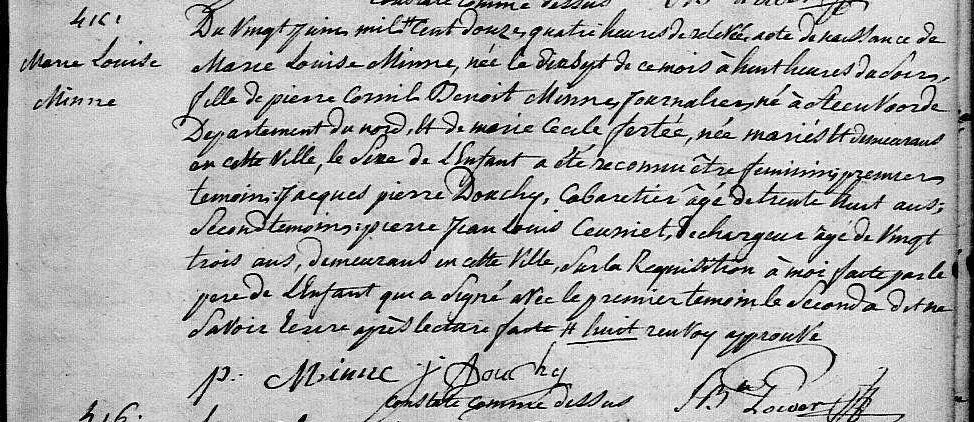 constaté comme dessus
415.
Du Vingt Juin mil # Cent douze, quatre heures de relevée, acte de naissance de
Marie Louise
Marie Louise Minne, née le dixsept de ce mois à huit heures du Soir,
Minne
fille de pierre Cornil Benoit Minne, Journalier, né à Steenvoorde
Département du nord, et de marie Cecile fertée, née mariés et demeurans
en cette Ville, le Sexe de L'Enfant a été reconnu être feminin; premier
temoin: Jacques pierre Douchy, Cabaretier âgé de trente huit ans;
Second temoin: pierre Jean Louis Ceuniet, Déchargeur âgé de Vingt
trois ans, demeurans en cette Ville, Sur la Requisition à moi faite par le
pere de L'Enfant qui a Signé avec le premier temoin le Second a dit ne
Savoir Ecrire après lecture faite # huit renvoy approuvé
p. Minne j Douchy
Constaté Comme dessus
416.